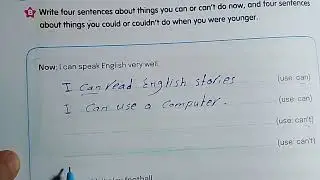 6 Write four sentences about things you can or can't do now, and four sentences
about things you could or couldn't do when you were younger.
Now: I can speak English very well.
I can read English stories (use: can)
I can use a computer. (use: can)
(use: can't)
(use: can't)
football